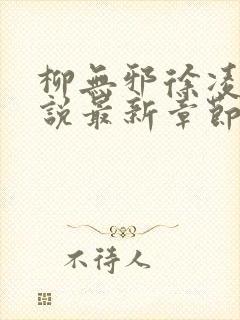 柳無邪徐凌
說最新章節
不待人